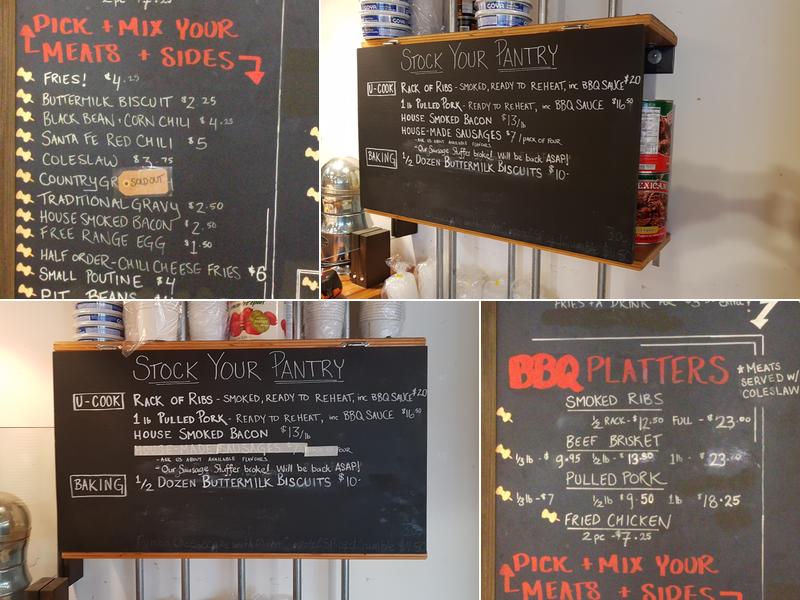 PICK + MIX YOUR
MEATS + SIDES
FRIES! $4.25
BUTTERMILK BISCUIT $2.25
BLACK BEAN + CORN CHILI $4.25
SANTA FE RED CHILI $5
COLESLAW $3.75
COUNTRY GR SOLD OUT
TRADITIONAL GRAVY $2.50
HOUSE SMOKED BACON $2.50
FREE RANGE EGG $1.50
HALF ORDER-CHILI CHEESE FRIES $6
SMALL POUTINE $4
PIT BEANS
GOYA GOYA
STOCK YOUR PANTRY
U-COOK RACK OF RIBS - SMOKED, READY TO REHEAT, inc BBQ SAUCE $20
1 lb PULLED PORK - READY TO REHEAT, inc BBQ SAUCE $16.50
HOUSE SMOKED BACON $13/lb
HOUSE-MADE SAUSAGES $7/PACK OF FOUR
- ASK US ABOUT AVAILABLE FLAVOURS
*Our Sausage Stuffer broke! Will be back ASAP!
BAKING 1/2 DOZEN BUTTERMILK BISCUITS $10-
MEXICAN
STOCK YOUR PANTRY
U-COOK RACK OF RIBS - SMOKED, READY TO REHEAT, inc BBQ SAUCE $20
1 lb PULLED PORK - READY TO REHEAT, inc BBQ SAUCE $16.50
HOUSE SMOKED BACON $13/lb
HOUSE-MADE SAUSAGES $7 FOUR
- ASK US ABOUT AVAILABLE FLAVOURS
*Our Sausage Stuffer broke! Will be back ASAP!
BAKING 1/2 DOZEN BUTTERMILK BISCUITS $10-
FRIES + A DRINK FOR
BBQ PLATTERS
* MEATS
SERVED W/
COLESLAW
SMOKED RIBS
1/2 RACK - $12.50 FULL - $23.00
BEEF BRISKET
1/3 lb - $9.95 1/2 lb - $13.50 1 lb - $23.00
PULLED PORK
1/3 lb - $7 1/2 lb $9.50 1 lb $18.25
FRIED CHICKEN
2 pc - $7.25
PICK + MIX YOUR
MEATS + SIDES